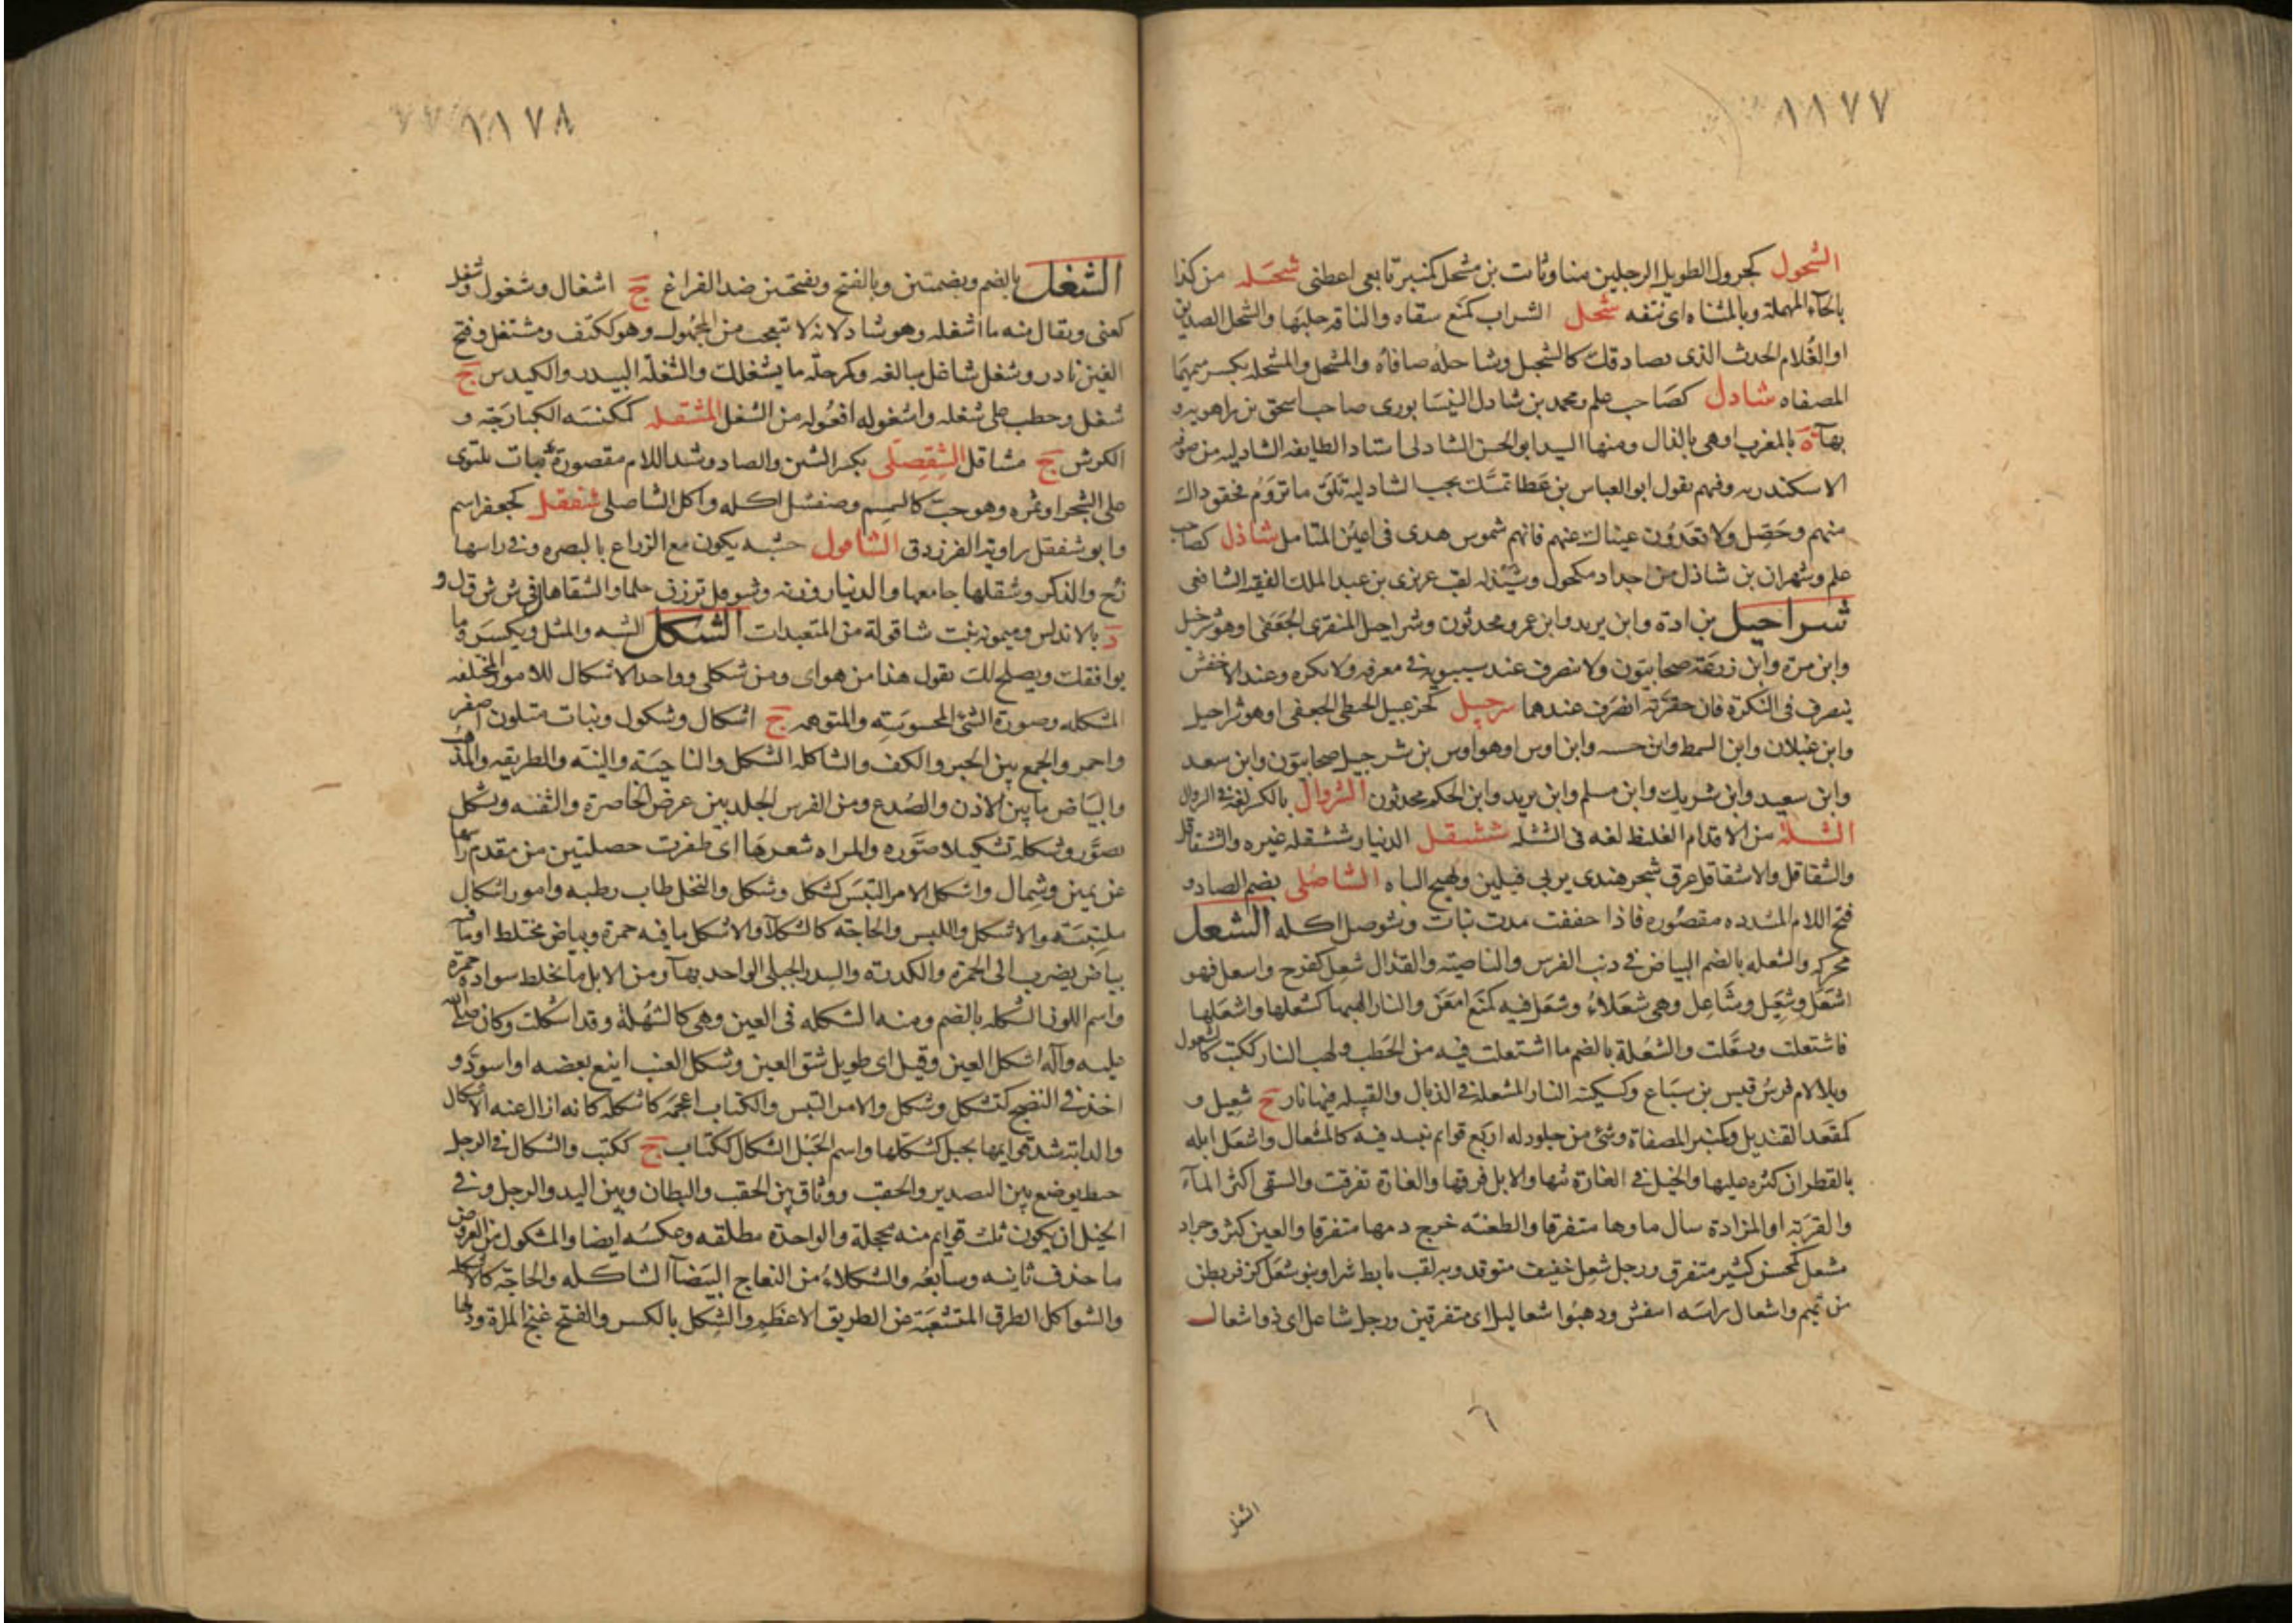 ١٨٧٧
الشحول كجرول الطويل الرجلين منا وثابت بن مشحل كمنبر تابعى اعطنى شحله من كذا
بالحاء المهملة وبالمثناه اى نتفه شخل الشراب كمنع سقاه والناقه حلبها والشخل الصديق
او الغلام الحدث الذى يصادقك كالشخيل وشاخله صافاه والمشخل والمشخله بكسر ميمهما
المصفاه شادل كصاحب علم ومحمد بن شادل النيسابورى صاحب اسحق بن راهويه و
بهآء ة بالمغرب او هى بالذال ومنها السيد ابو الحسن الشادلى استاد الطايفه الشادليه من صوفيه
الاسكندريه وفيهم يقول ابو العباس بن عطا تمسك بحب الشادلية تلق ما تروم فحقق ذاك
منهم وحصل ولا تعدون عيناك عنهم فانهم شموس هدى فى اعين المتامل شاذل كصاحب
علم وشهران بن شاذل من اجداد مكحول وشيذله لقب عزيزى بن عبد الملك الفقيه الشافعى
شراحيل بن ادة وابن يزيد وابن عمرو محدثون وشراحيل المنقرى الجعفى او هو شرحبيل
وابن مرة وابن زرعة صحابيون ولا ينصرف عند سيبويه فى معرفه ولا نكره وعند الاخفش
ينصرف فى النكرة فان حقرته انصرف عندهما شرحبيل كخزعبيل الحنطى الجعفى او هو شراحيل
وابن غيلان وابن السمط وابن حسنه وابن اوس او هو اوس بن شرحبيل صحابيون وابن سعد
وابن سعيد وابن شريك وابن مسلم وابن يزيد وابن الحكم محدثون الشروال بالكسر لغة فى السروال
الشثله من الاقدام الغليظ لغه فى الشثله ششقل الدينار وششقله غيره والشقاقل
والشقاقل والاشقاقل عرق شجر هندى يربى فيلين ويهيج الباه الشاصلى بضم الصاد و
فتح اللام المشدده مقصوره فاذا خففت مدت نبات وشوصل اكله الشعل
محركه والشعله بالضم البياض فى ذنب الفرس والناصيته والقذال شعل كفرح واشعل فهو
اشعل وشعيل وشاعل وهى شعلاء وشعل فيه كمنع امعن والنار الهبها كشعلها واشعلها
فاشتعلت وتشعلت والشعلة بالضم ما اشتعلت فيه من الحطب ولهب النار ككتب كالشعلول
وبلا لام فرس قيس بن سباع وكسكينة النار المشعله فى الذبال والفتيله فيها نار ج شعيل و
كمقعد القنديل وكمنبر المصفاة وشئ من جلود له اربع قوايم ينبذ فيه كالمشعال واشعل ابله
بالقطران كثره عليها والخيل فى الغارة بثها والابل فرقها والغارة تفرقت والسقى اكثر المآء
والقربة او المزادة سال ماوها متفرقا والطعنه خرج دمها متفرقا والعين كثر وجراد
مشعل كمحسن كثير متفرق ورجل شعل خفيف متوقد وبه لقب تابط شرا وبنو شعل كزفر بطن
من تميم واشعال راسه انتفش وذهبوا شعاليل اى متفرقين ورجل شاعل اى ذو اشعال
٦
الشغل
١٨٧٨
الشغل بالضم وبضمتين وبالفتح وبفتحتين ضد الفراغ ج اشغال وشغول وشغل
كعنى ويقال منه ما اشغله وهو شاذ لانه لا يتعجب من المجهول وهو ككتف ومشتغل وفتح
الغين نادر وشغل شاغل مبالغه وكمرحلة ما يشغلك والشغلة البيدر والكيدس ج
شغل وحطب على شغله واشغوله افعوله من الشغل المشقله كمكنسه الكبارجه و
الكرش ج مشاقل الشقصلى بكسر الشين والصاد وشد اللام مقصورة نبات يلتوى
على الشجر او ثمره وهو حب كالسمسم وصنفشل اكله واكل الشاصلى شفقل كجعفر اسم
وابو شفقل راوية الفرزدق الشاقول خشبه يكون مع الزراع بالبصره وفى راسها
زج والذكر وشقلها جامعها والدينار وزنه وشوقل ترزن حلما والشقاقل فى ش ش ق ل و
د بالاندلس وميمونه بنت شاقولة من المتعبدات الشكل الشبه والمثل ويكسر وما
يوافقك ويصلح لك تقول هذا من هواى ومن شكلى وواحد الاشكال للامور المختلفه
المشكله وصورة الشئ المحسوسته والمتوهمه ج اشكال وشكول ونبات متلون اصفر
واحمر والجمع بين الخبن والكف والشاكله الشكل والناحيته والنيته والطريقه والمذهب
والبياض ما بين الاذن والصدع ومن الفرس الجلد بين عرض الخاصرة والثفنه وتشكل
تصور وشكله تشكيلا صوره والمراه شعرها اى ظفرت خصلتين من مقدم راسها
عن يمين وشمال واشكل الامر التبس كشكل وشكل والنخل طاب رطبه وامور اشكال
ملتبسة والاشكل واللبس والحاجه كالشكلآ والاشكل ما فيه حمرة وبياض مختلط او مآ فيه
بياض يضرب الى الحمرة والكدرة والسدر الجبلى الواحد بهآء ومن الابل ما يخلط سواده حمرة
واسم اللون الشكله بالضم ومنه الشكله فى العين وهى كالشهلة وقد اشكلت وكان صلى الله
عليه وآله اشكل العين وقيل اى طويل شق العين وشكل العنب اينع بعضه او اسود و
اخذ فى النضج كتشكل وشكل والامر التبس والكتاب اعجمه كاشكله كانه ازال عنه الاشكال
والدابة شد قوايمها بحبل كشكلها واسم الحبل الشكال ككتاب ج ككتب والشكال فى الرحل
خيط يوضع بين التصدير والحقب ووثاق بين الحقب والبطان وبين اليد والرجل وفى
الخيل ان يكون ثلث قوايم منه محجلة والواحدة مطلقه وعكسه ايضا والمشكول من العروض
ما حذف ثانيه وسابعه والشكلاء من النعاج البيضآ الشاكله والحاجه كالاشكله
والشواكل الطرق المتشعبة عن الطريق الاعظم والشكل بالكسر والفتح غنج المراة ودلها